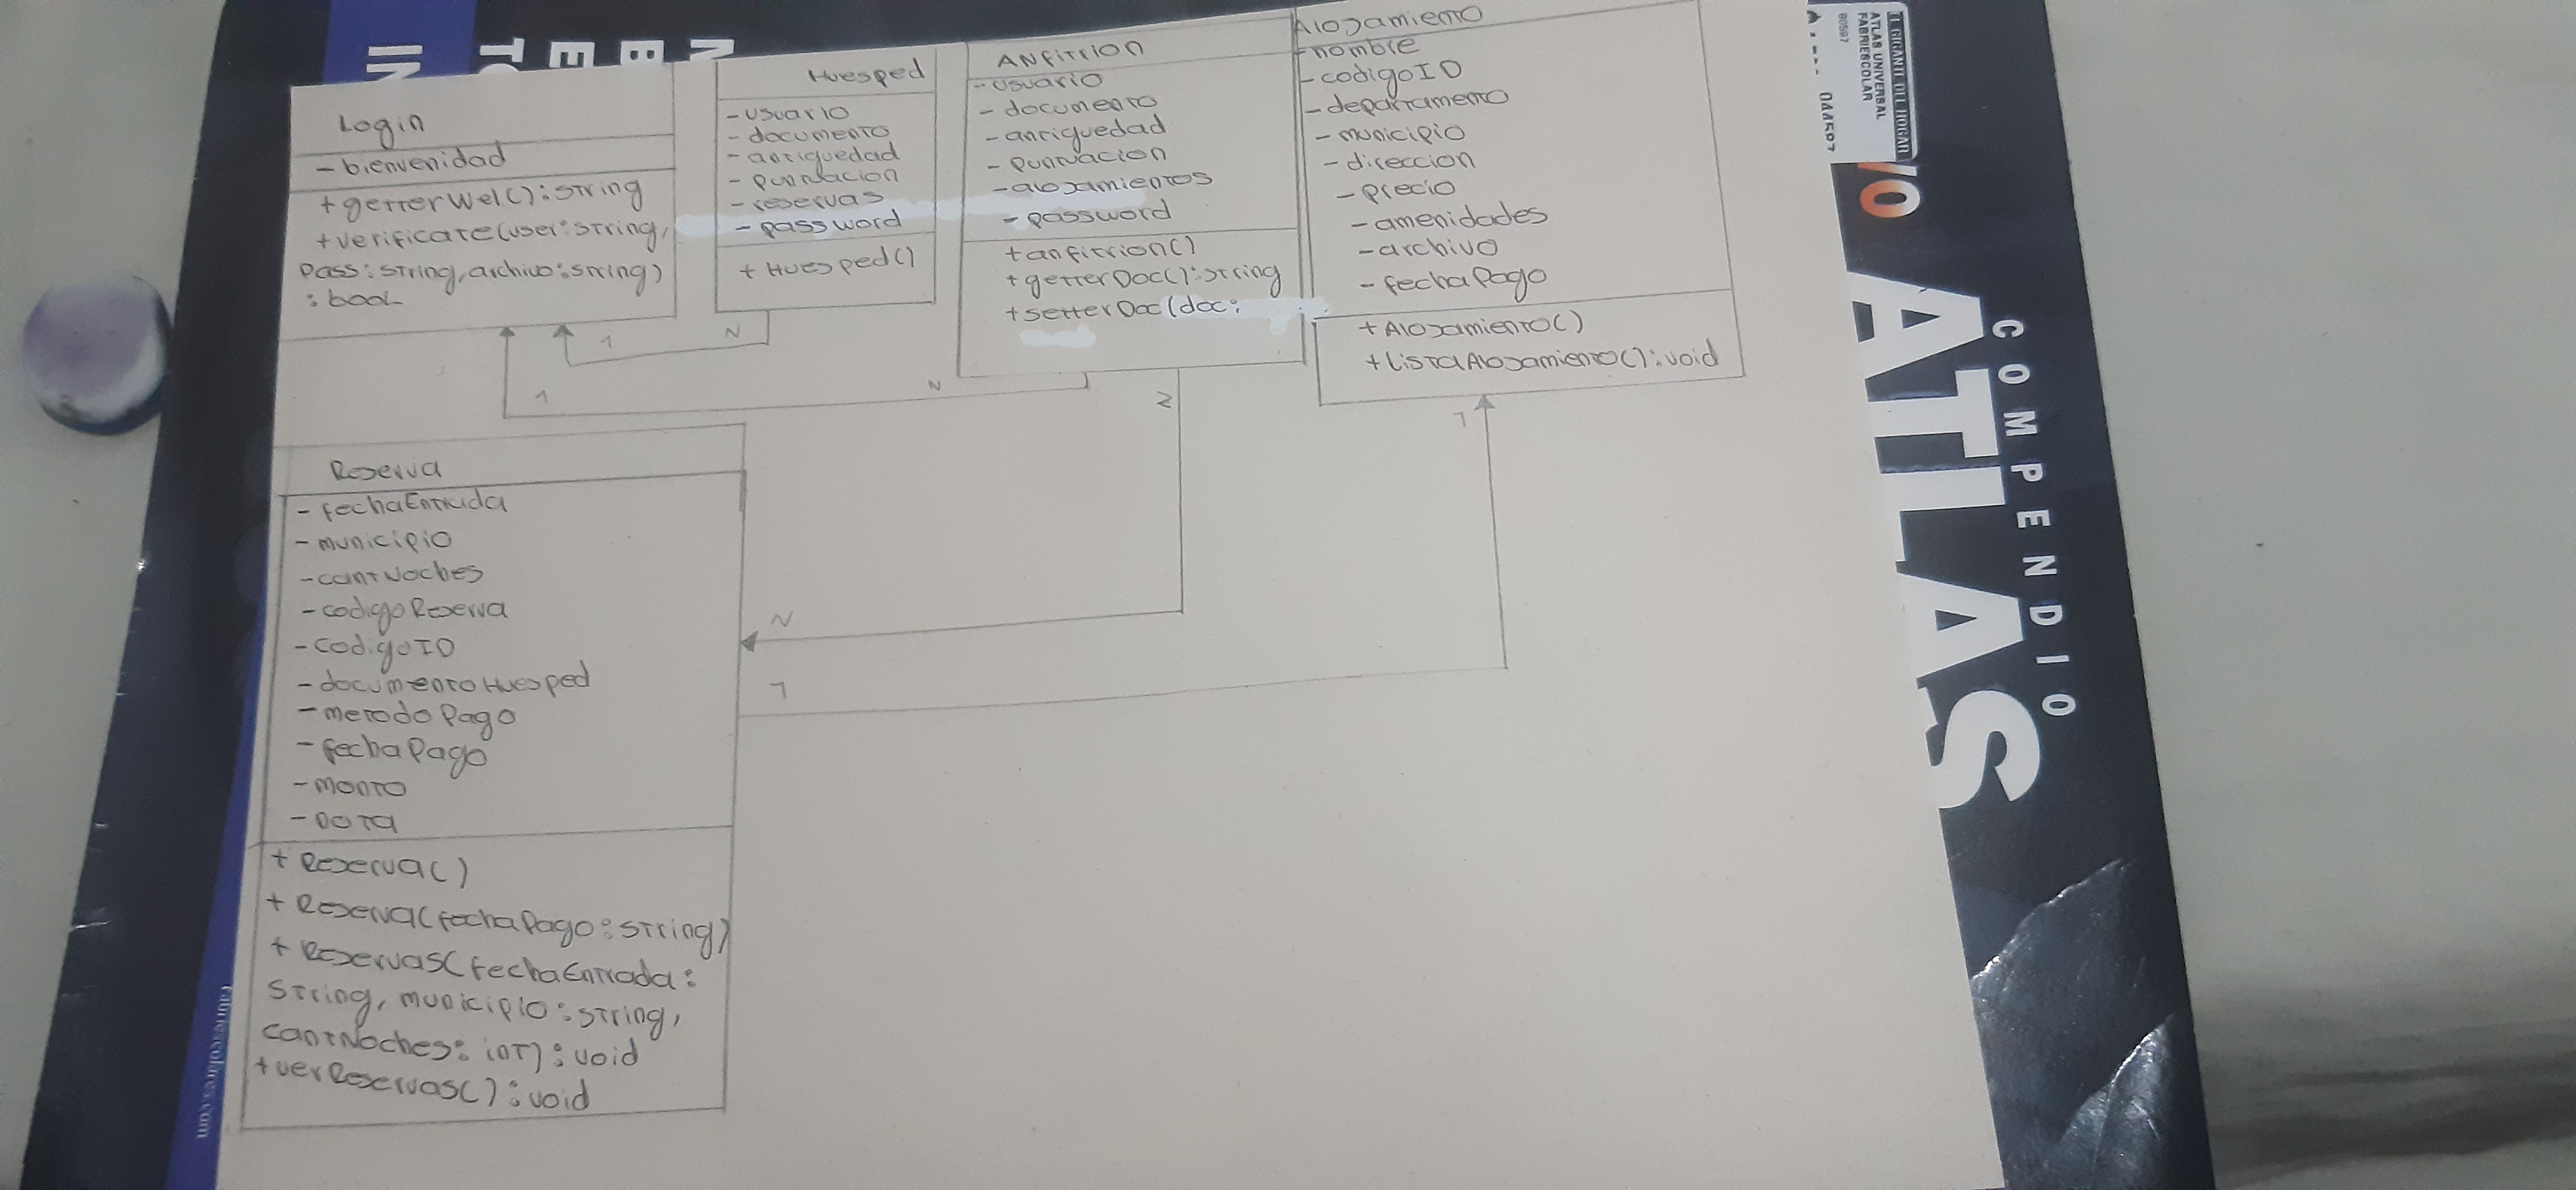 Login
- bienvenidad
+ getterWel(): string
+ verificate(user: string,
pass: string, archivo: string)
: bool
Huesped
- usuario
- documento
- antiguedad
- puntuacion
- reservas
- password
+ Huesped()
Anfitrion
- usuario
- documento
- antiguedad
- puntuacion
- alojamientos
- password
+ anfitrion()
+ getterDoc(): string
+ setterDoc(doc:
Alojamiento
- nombre
- codigoID
- departamento
- municipio
- direccion
- precio
- amenidades
- archivo
- fechaPago
+ Alojamiento()
+ ListaAlojamiento(): void
1
N
1
N
N
N
1
1
Reserva
- fechaEntrada
- municipio
- cantNoches
- codigoReserva
- codigoID
- documentoHuesped
- metodoPago
- fechaPago
- monto
- nota
+ Reserva()
+ Reserva(fechaPago: string)
+ Reservas(fechaEntrada:
string, municipio: string,
cantNoches: int): void
+ verReservas(): void
EL GIGANTE DEL HOGAR
ATLAS UNIVERSAL
FABRIESCOLAR
80597
COMPENDIO
ATLAS